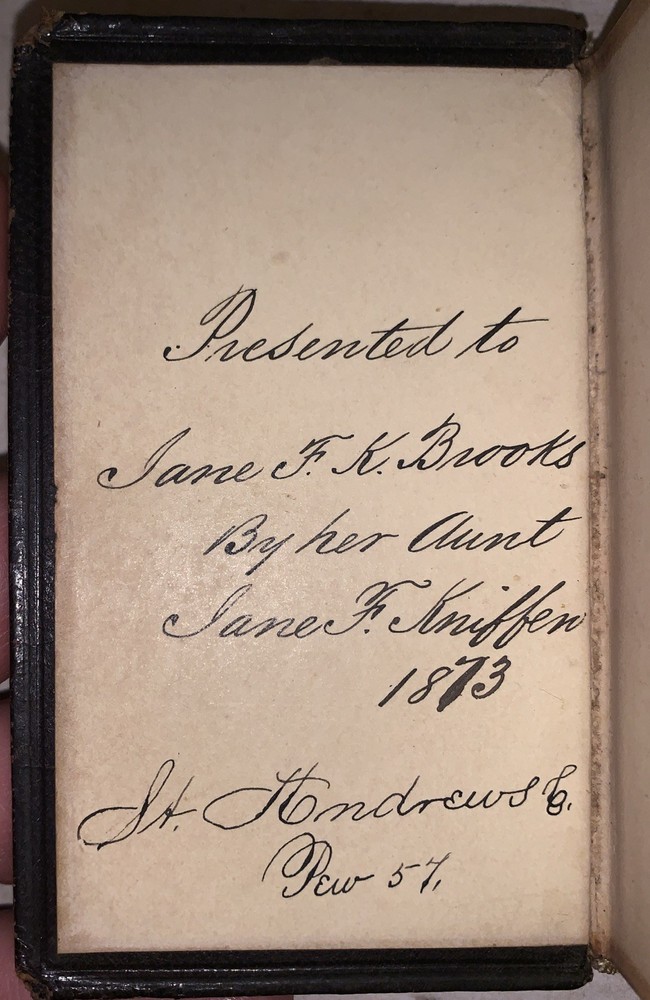 Presented to
Jane F. K. Brooks
By her Aunt
Jane F. Kniffen
1873
St. Andrews C.
Pew 57.